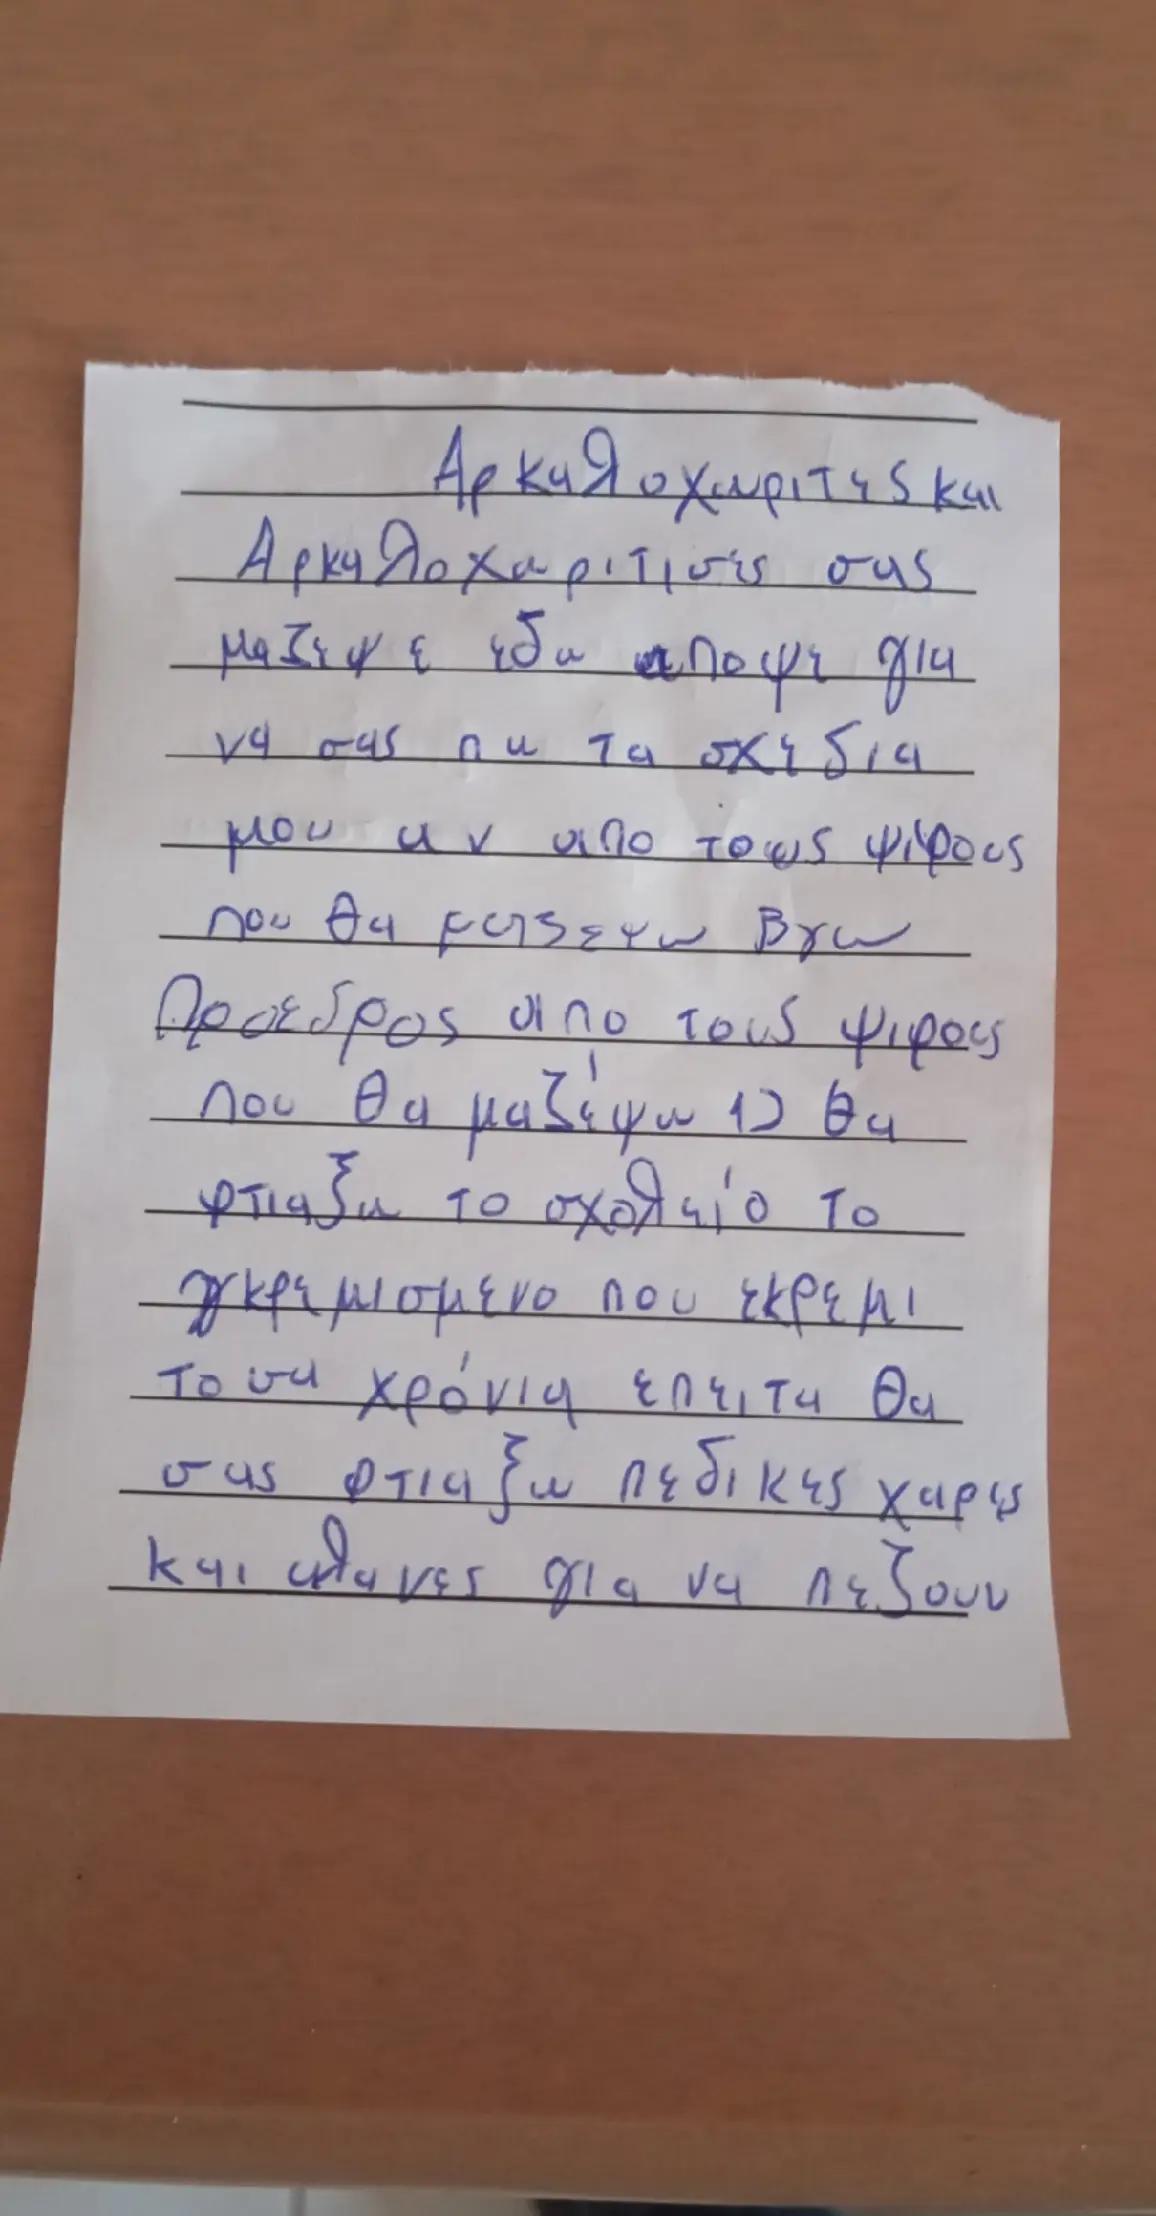 Αρκαλοχωριτες και
Αρκαλοχωριτισες σας
μαζεψε εδω αποψε για
να σας πω τα σχεδια
μου αν απο τους ψίρους
που θα μαζεψω Βγω
Προεδρος απο τους ψιρους
που θα μαζέψω 1) θα
φτιαξω το σχολείο το
γκρεμισμενο που εκρεμι
τοσα χρόνια επειτα θα
σας φτιαξω πεδικες χαρες
και αλανες για να πεζουν